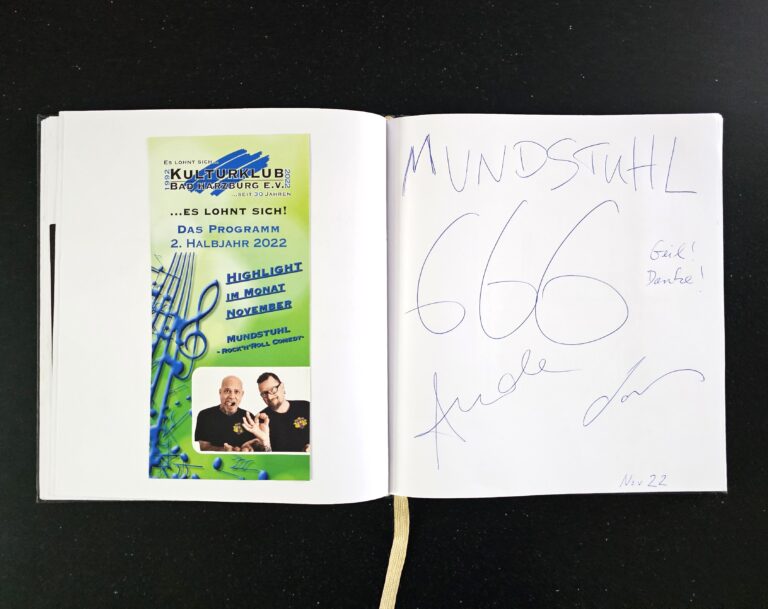 ES LOHNT SICH...
1992 KULTURKLUB 2022
BAD HARZBURG E.V.
...SEIT 30 JAHREN
...ES LOHNT SICH!
DAS PROGRAMM
2. HALBJAHR 2022
HIGHLIGHT
IM MONAT
NOVEMBER
MUNDSTUHL
-ROCK'N'ROLL COMEDY-
MUNDSTUHL
666
Geil!
Danke!
Ande
Nov 22